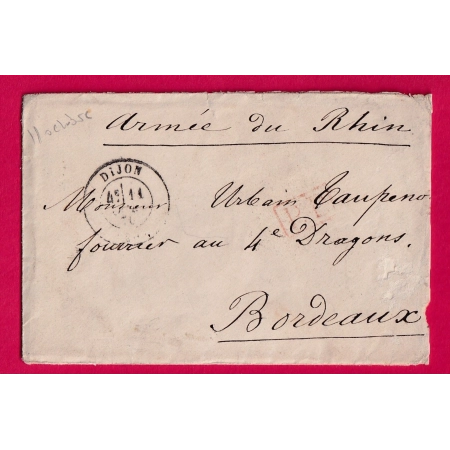 11 octobre
Armée du Rhin
DIJON
4E 11
Monsieur Urbain Taupeno
fourrier au 4e Dragons.
Bordeaux